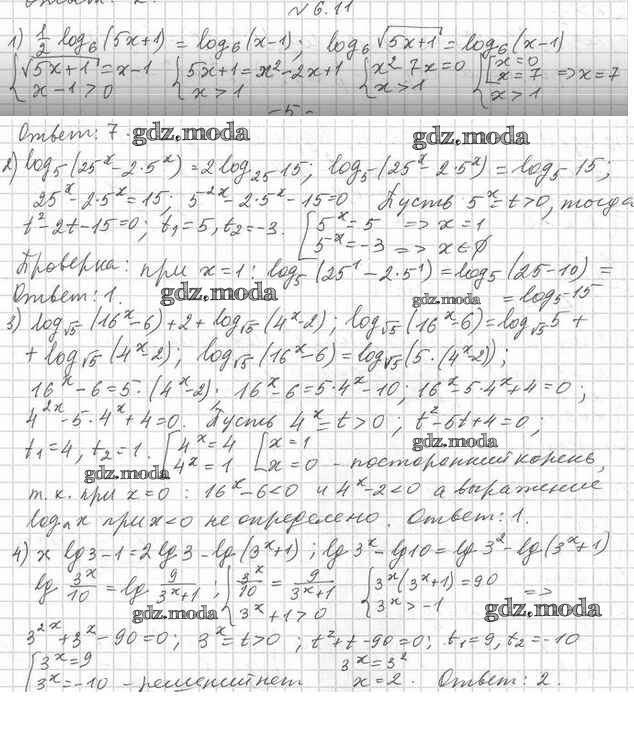 Ответ: 2.
№ 6.11
1) 1/2 log₆(5x+1) = log₆(x-1); log₆√(5x+1) = log₆(x-1)
{√(5x+1) = x-1 {5x+1 = x²-2x+1 {x²-7x=0 {[x=0
x-1>0 x>1 x>1 x=7 => x=7
x>1
-5-
Ответ: 7. gdz.moda gdz.moda
2) log₅(25ˣ-2·5ˣ) = 2log₂₅15; log₅(25ˣ-2·5ˣ) = log₅15;
25ˣ-2·5ˣ=15; 5⁻²ˣ-2·5ˣ-15=0 Пусть 5ˣ=t>0, тогда
t²-2t-15=0; t₁=5, t₂=-3. [5ˣ=5 => x=1
5ˣ=-3 => x∈∅
Проверка: при x=1: log₅(25¹-2·5¹) = log₅(25-10) =
Ответ: 1. gdz.moda gdz.moda = log₅15
3) log_√5(16ˣ-6)+2+log_√5(4ˣ-2); log_√5(16ˣ-6)=log_√5 5 +
+ log_√5(4ˣ-2); log_√5(16ˣ-6)=log_√5(5·(4ˣ-2));
16ˣ-6=5·(4ˣ-2); 16ˣ-6=5·4ˣ-10; 16ˣ-5·4ˣ+4=0;
4²ˣ-5·4ˣ+4=0. Пусть 4ˣ=t>0; t²-5t+4=0;
t₁=4, t₂=1. [4ˣ=4 [x=1 gdz.moda
4ˣ=1 x=0 - посторонний корень,
gdz.moda
т.к. при x=0: 16ˣ-6<0 и 4ˣ-2<0 а выражение
logₙx при x<0 не определено. Ответ: 1.
4) x lg3-1=2lg3-lg(3ˣ+1); lg3ˣ-lg10=lg3²-lg(3ˣ+1)
lg 3ˣ/10 = lg 9/(3ˣ+1); {3ˣ/10 = 9/(3ˣ+1) {3ˣ(3ˣ+1)=90 =>
gdz.moda 3ˣ+1>0 3ˣ>-1 gdz.moda
3²ˣ+3ˣ-90=0; 3ˣ=t>0; t²+t-90=0; t₁=9, t₂=-10
[3ˣ=9 3ˣ=3²
3ˣ=-10 - решений нет x=2. Ответ: 2.